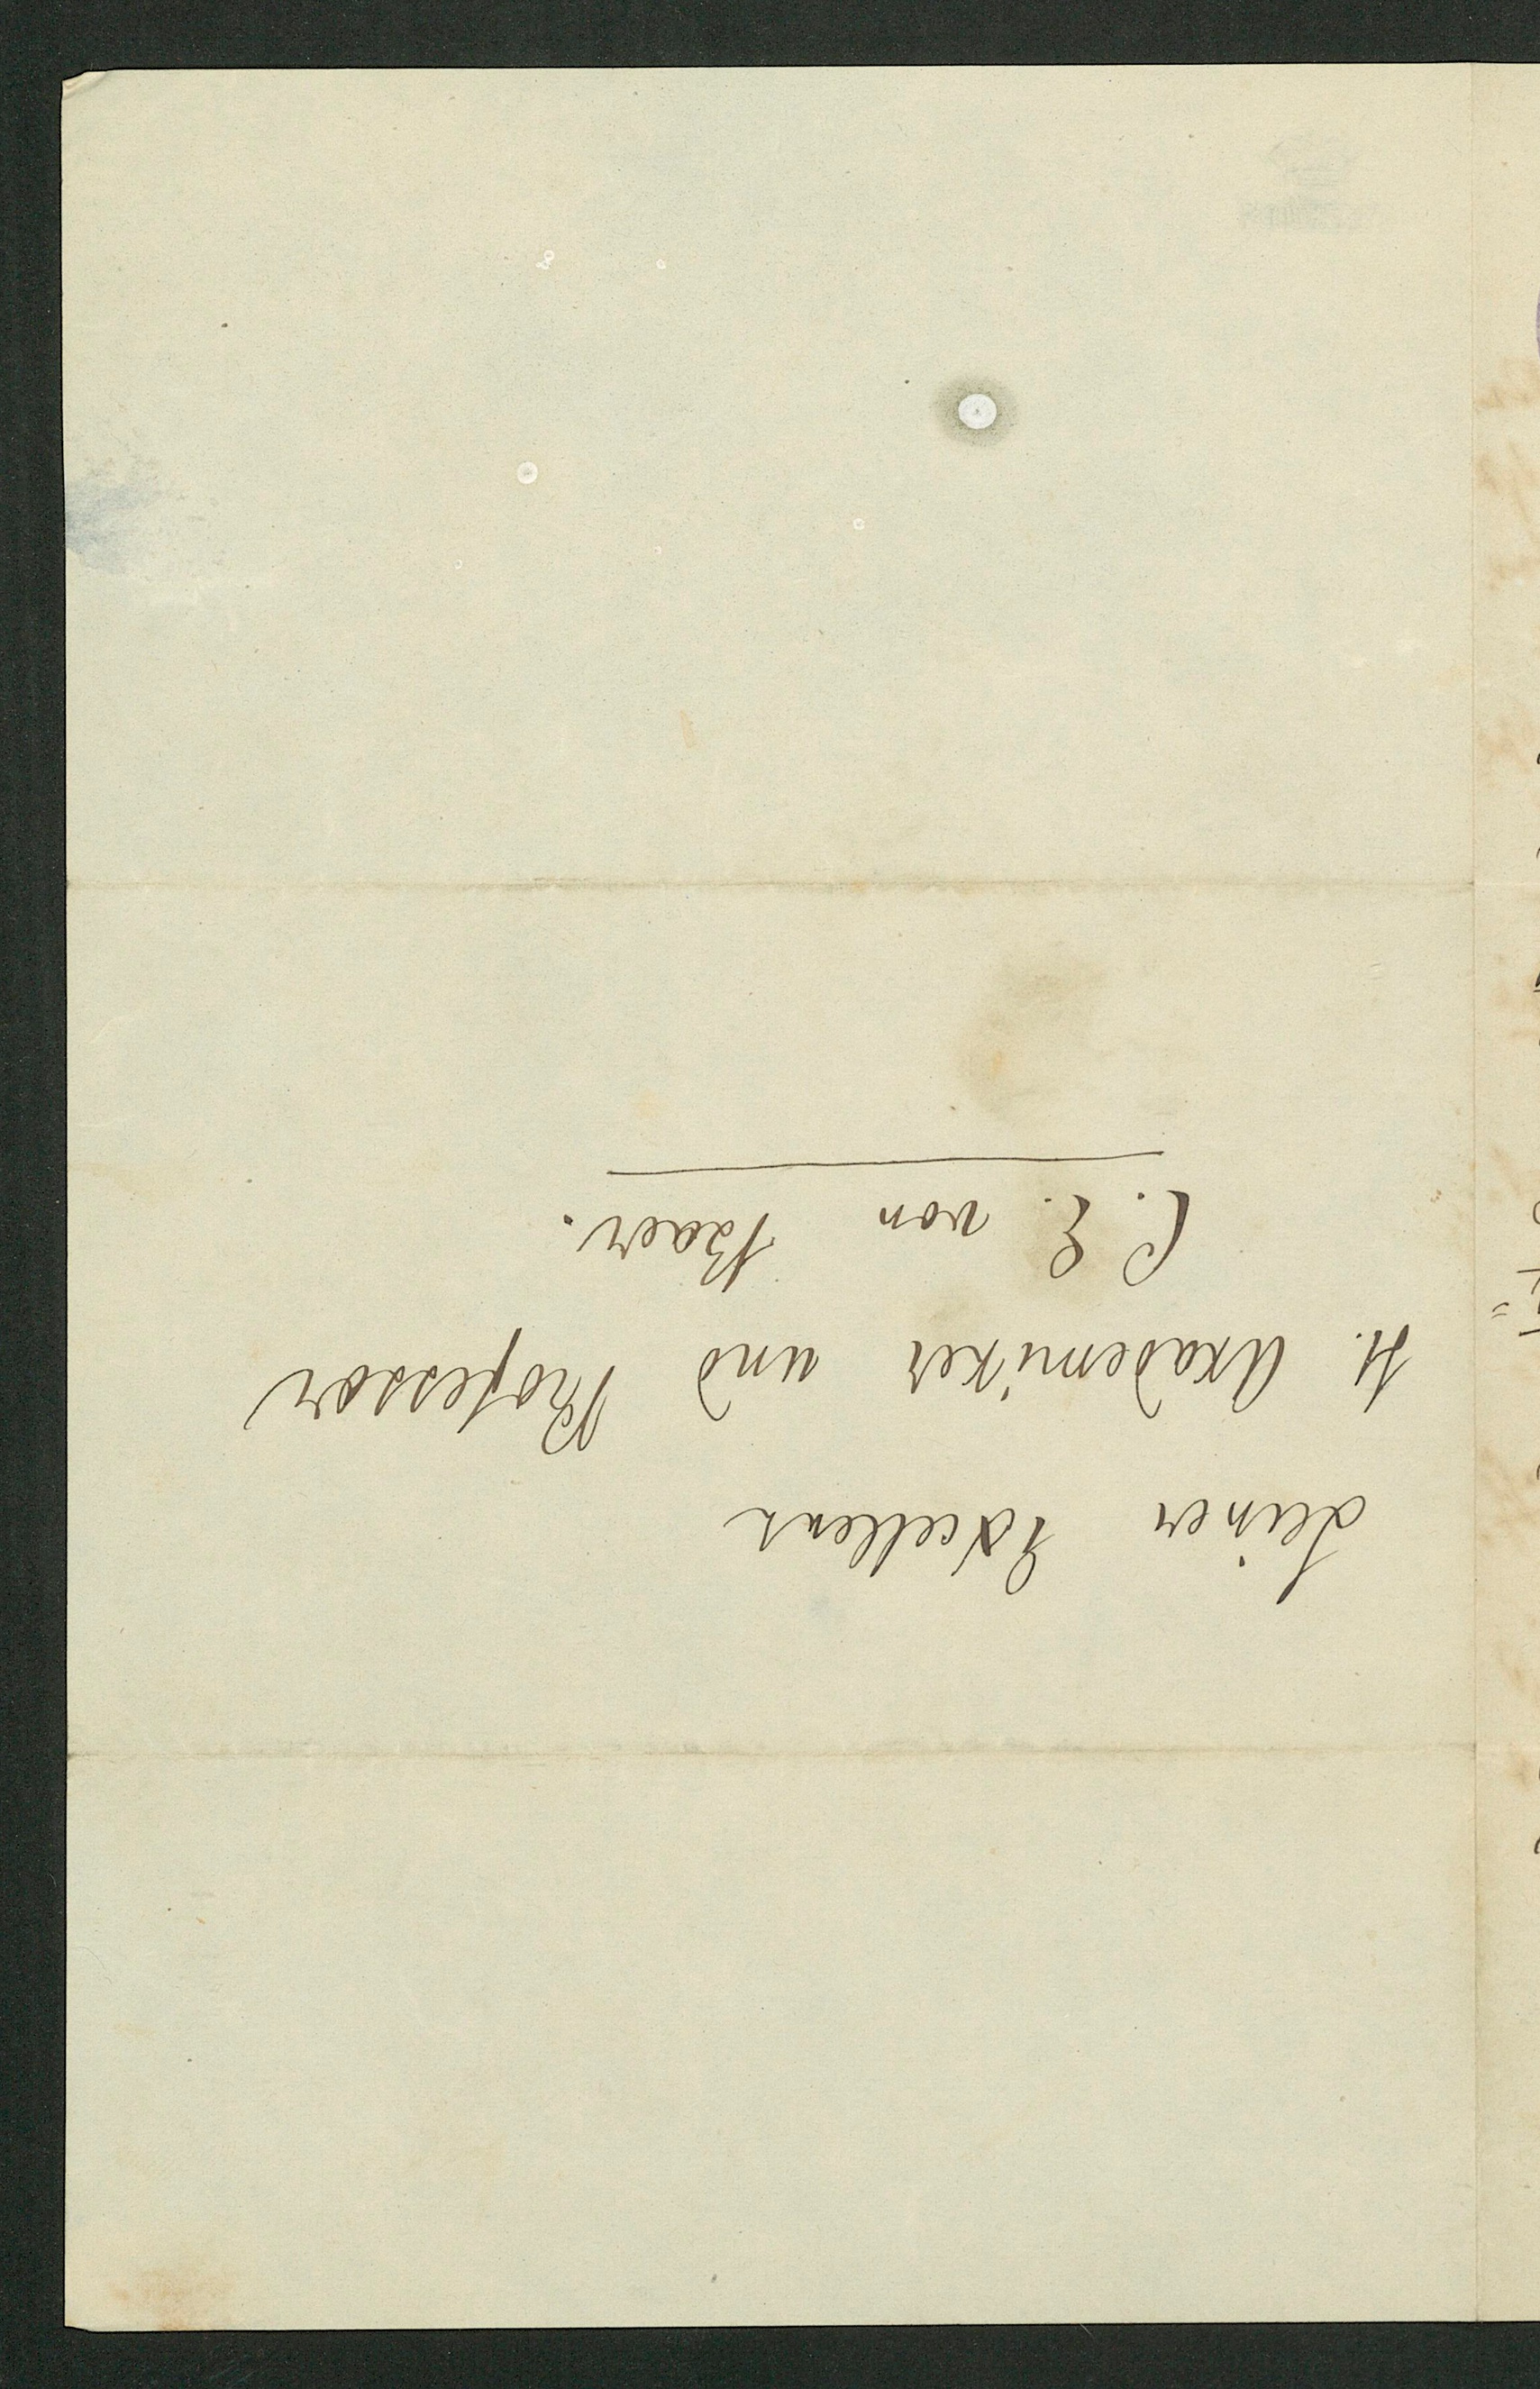 Seiner Excellenz
H. Akademiker und Professor
C. E. von Baer.